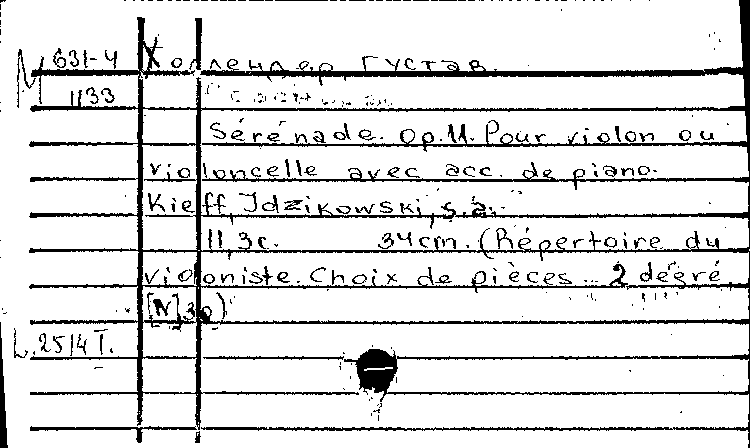 М 631-4 Холлендер, Густав.
1133
Sérénade. Op.11. Pour violon ou
violoncelle avec acc. de piano.
Kieff, Idzikowski, s.a.
11,3с. 34cm. (Répertoire du
violoniste. Choix de pièces... 2 degré,
[N]30)
L.2514 I.